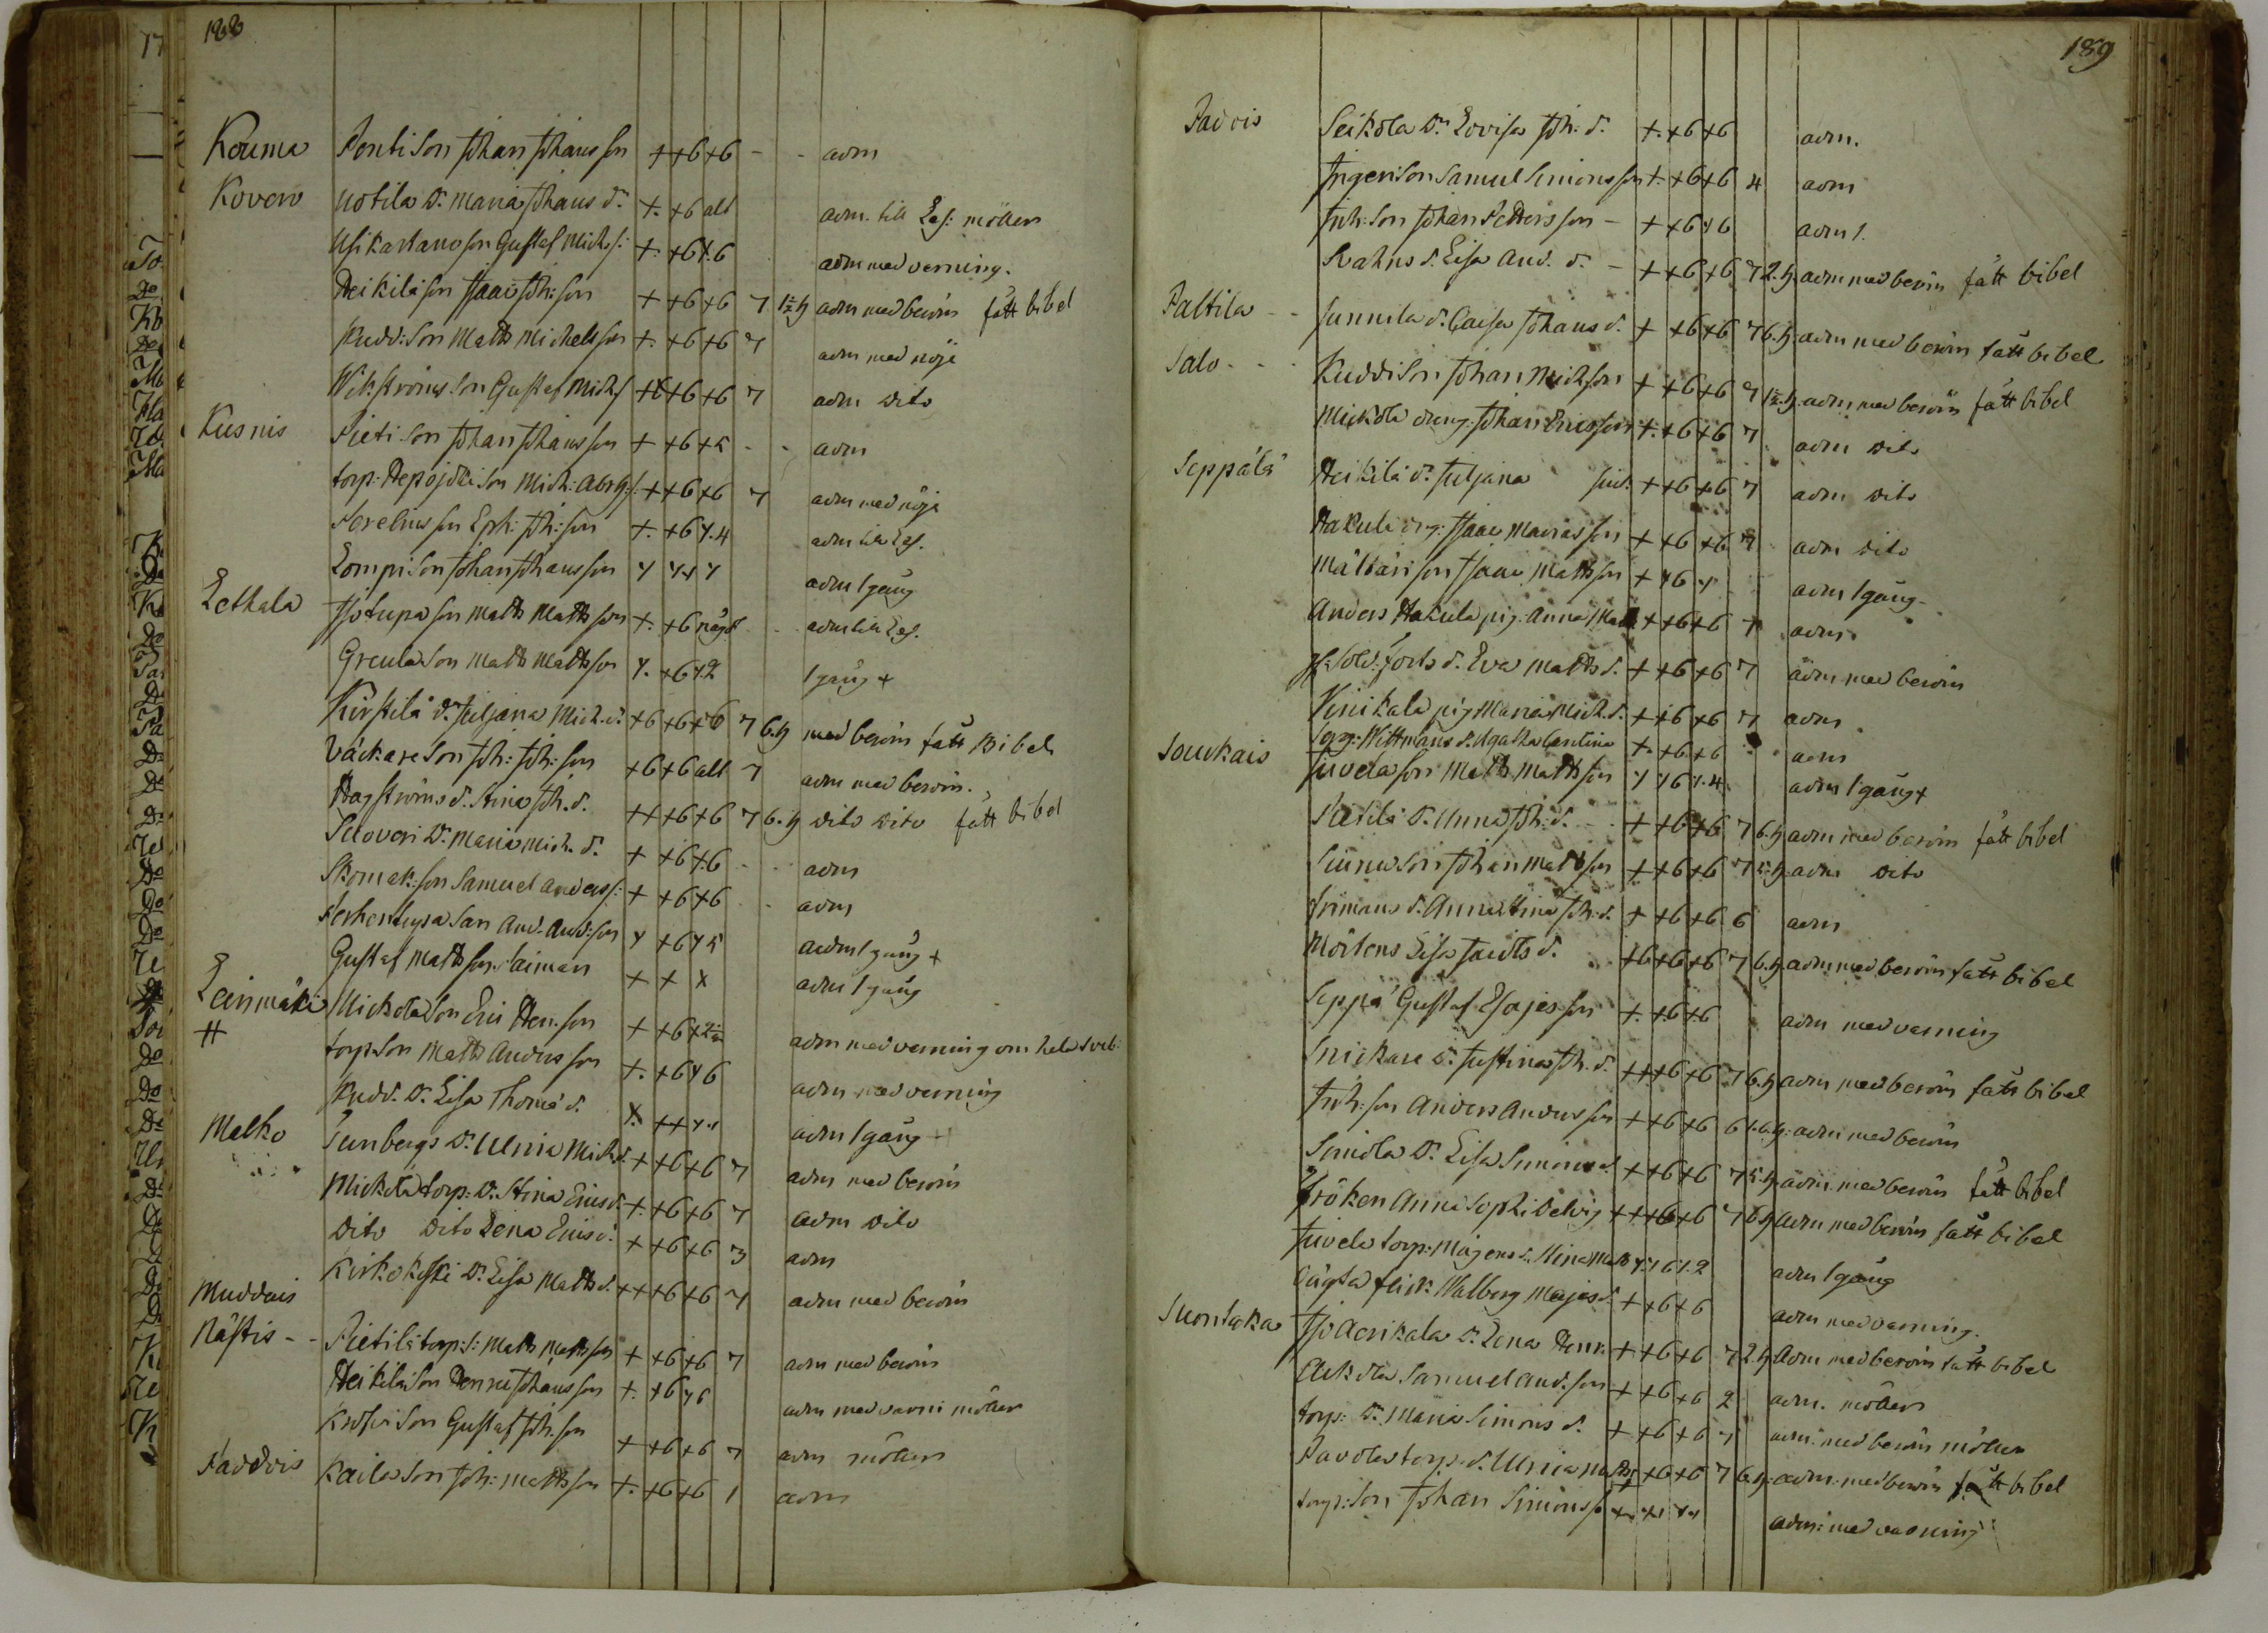 188
Kouma Pentison Johan Johansson + +6 +6 - - adm
Kovero Uotila Dr. Maria Johans d. +. +6 alt adm. till Läs: möten
Usikartano son Gustaf Mich.s: +. +6 Y.6 adm med varning.
Heikilä son Isaac Joh:son + +6 +6 7 1½ h adm med beröm fått bibel
Rudd: Son Matts Michelsson +. +6 +6 7 adm med nöje
Wikströms son Gustaf Mich.s +6 +6 +6 7 adm dito
Kusnis Pietison Johan Johansson + +6 +5 - - adm
torp: Son Mich: + +6 +6 7 adm med nöje
son Eph: Joh:son +. +6 Y.4 adm till Läs.
Lompi Son Johan Johansson Y Y Y Y adm 1 gång
Lethala Isotupa son Matts Mattsson +. +6 något - - adm till Läs.
Greula Son Matts Mattsson Y. +6 Y2 1 gång +
Kirstilä d. Juljana Mich. d. +6 +6 +6 7 6.h med beröm fått Bibel
Väckare Son Joh: Joh: son +6 +6 alt 7 adm med beröm.
Hagströms d. Stina Joh. d. ++ +6 +6 7 6.h dito dito fått bibel
Dr. Maria Mich. d. + +6 Y.6 - - adm
Skomak: son Samuel Anderss: + +6 +6 - adm
And. And:son Y +6 Y5 adm 1 gång +
Gustaf Mattsson Saiman + + X adm 1 gång
Leinmäki Mickola Son Eric Hen. son + +6 +2 adm med varning om
# torp Son Matts Anders son +. +6 Y6 adm med varning
Rudd. Dr. Lisa Thoma d. X + + Y adm 1 gång
Melko Sunbergs Dr. Ulrica Mich. d. + +6 +6 7 adm med beröm
Mickola torp: Dr. Stina Erics d. +. +6 +6 7 adm dito
Dito Dito Lena Erics d. + +6 +6 3 adm
Kirkokeski Dr. Lisa Matts d. ++ +6 +6 7 adm med beröm
Muddais
Nästis - - Pietilä torp: s: Matts Mattsson + +6 +6 7 adm med beröm
Heikilä Son Henric Johansson +. +6 Y6 adm med varni möten
Son Gustaf Joh. son + +6 +6 7 adm möten
Paddvis Kaila Son Joh: Mattsson +. +6 +6 1 adm
189
Padvis Seikola Dr. Lovisa Joh: d. +. +6 +6 adm.
Ingeri Son Samuel Simonsson +. +6 +6 4 adm
Inh: Son Johan Petterson - + +6 Y6 adm 1.
Rahns d. Lisa And. d. - + +6 +6 7 2.h. adm med beröm fått bibel
Paltila - - Junnila d. Caisa Johans d. + +6 +6 7 6.h. adm med beröm fått bibel
Salo - - - Kuddi Son Johan Mich son + +6 +6 7 1½.h. adm med beröm fått bibel
Mickola dreng. Johan Ericsson +. +6 +6 7 adm dito
Seppälä Heikilä Dr. Juljana + +6 +6 7 adm dito
Hakula drg: Isaac Mariasson + +6 +6 7 adm dito
Mältäri son Isaac Matts son + Y6 Y adm 1 gång
Anders Hakula pig. Anna + +6 +6 7 adm
Sold: d. Eva Matts d. + +6 +6 7 adm med beröm
Vinikala pig Maria Mich. d. + +6 +6 7 adm
Soukais Serg: Wittmans d. Agatha Carolina +. +6 +6 adm
Juvela son Matts Matts son Y Y6 Y.4 adm 1 gång +
Pietilä Dr. Anna Joh: d. - - + +6 +6 7 6.h adm med beröm fått bibel
Son Johan Matts son + +6 +6 7 5.h adm dito
Frimans d. Anna Stina Joh: d. + +6 +6 6 adm
Mårtens Lisa d. +6 +6 +6 7 6.h. adm med beröm fått bibel
Seppä Gustaf Esajes son +. +6 +6 adm med varning
Snickare Dr. Justina Joh: d. ++ +6 +6 7 6.h adm med beröm fått bibel
Inh: son Anders Anders son + +6 +6 6 1.6.h: adm med beröm
Simola Dr. Lisa Simons d. + +6 +6 7 5.h adm med beröm fått bibel
Fröken Anna Sophi Delvig ++ +6 +6 7 6.h adm med beröm fått bibel
Juvela torp: Mina Y6 Y.2 adm 1 gång
flick: Walborg d. + +6 +6 adm med varning.
Suontaka Dr. Lena Henr: +. +6 +6 7 2.h Adm med beröm fått bibel
Samuel And. son + +6 +6 2 adm. möten
torp: Dr. Maria Simons d. + +6 +6 7 adm: med beröm möten
Pavola torp. d. Ulrica + +6 +6 7 6.h. adm. med beröm fått bibel
torp: Son Johan Simonss + + adm: med varning